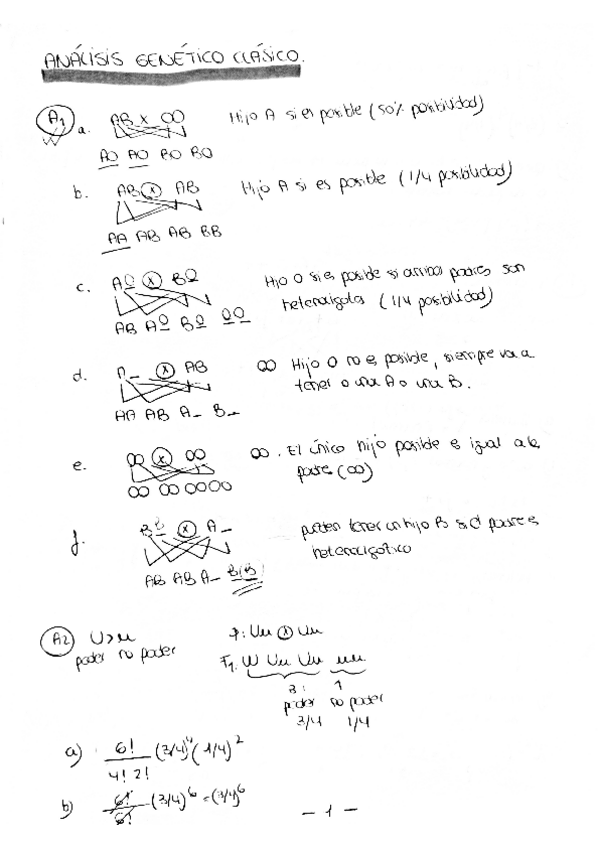 ANÁLISIS GENÉTICO CLÁSICO.
A1 a. AB x OO Hijo A si es posible (50% posibilidad)
AO AO BO BO
b. AB x AB Hijo A si es posible (1/4 posibilidad)
AA AB AB BB
c. AO x BO Hijo O si es posible si ambos padres son
heterocigotos (1/4 posibilidad)
AB AO BO OO
d. A_ x AB OO Hijo O no es posible, siempre va a
tener o una A o una B.
AA AB A_ B_
e. OO x OO OO. El único hijo posible es igual a los
padres (OO)
OO OO OO OO
f. BO x A_ pueden tener un hijo B si el padre es
heterocigótico
AB AB A_
A2 U>u P: Uu x Uu
poder no poder F1: UU Uu Uu uu
3 : 1
poder no poder
3/4 1/4
a) 6!/4! 2! (3/4)^4 (1/4)^2
b) 6!/6! (3/4)^6 = (3/4)^6
- 1 -